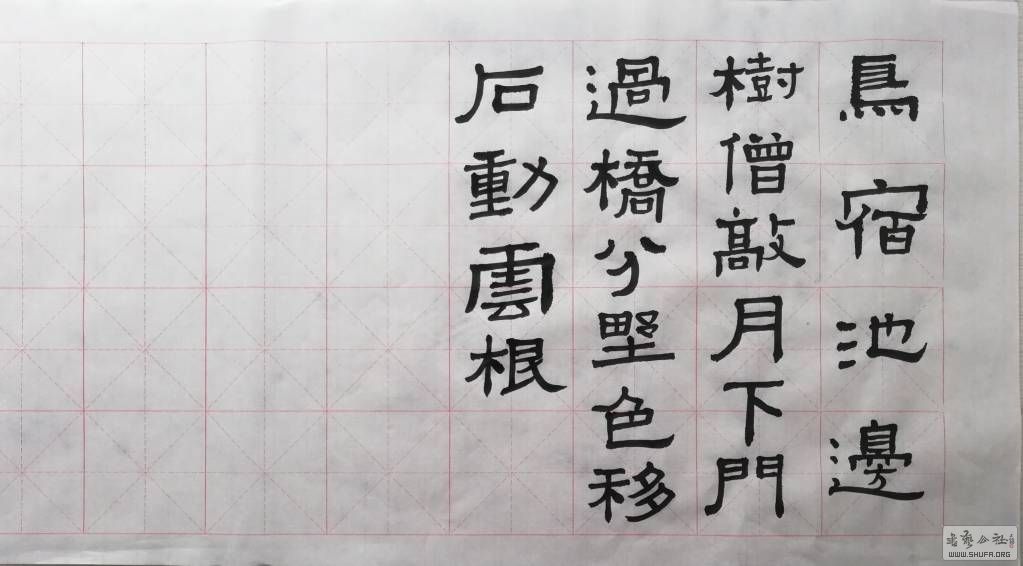 鳥宿池邊
樹僧敲月下門
過橋分墅色移
石動雲根
書藝公社
WWW.SHUFA.ORG